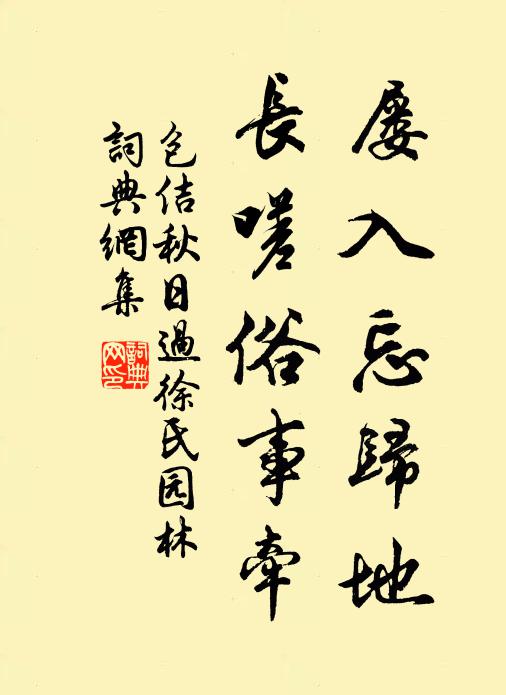 屡入忘歸地
長嗟俗事牽
包佶秋日過徐氏园林
詞典網集
詞典网印